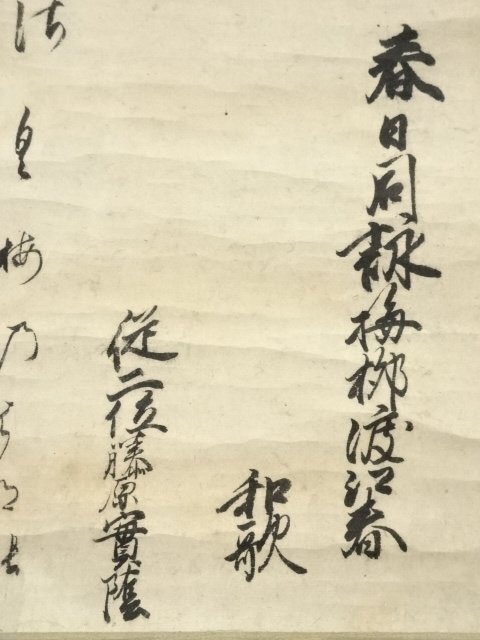 春日同詠梅柳渡江春
和歌
従二位藤原實陰
梅乃